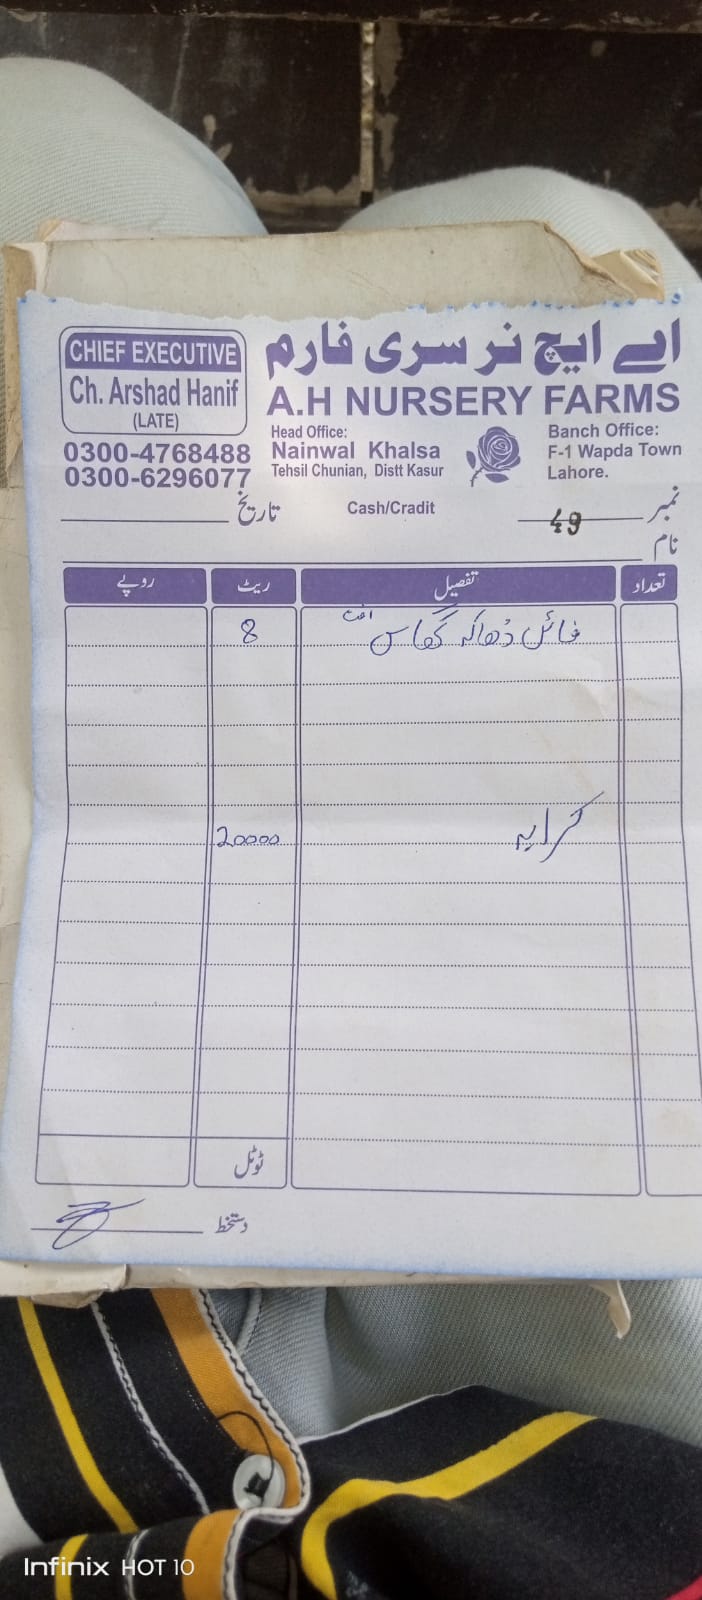 CHIEF EXECUTIVE
Ch. Arshad Hanif
(LATE)
0300-4768488
0300-6296077
اے ایچ نرسری فارم
A.H NURSERY FARMS
Head Office:
Nainwal Khalsa
Tehsil Chunian, Distt Kasur
Banch Office:
F-1 Wapda Town
Lahore.
نمبر 49
Cash/Cradit
تاریخ
نام
تعداد تفصیل ریٹ روپے
فائن ڈھاکہ گھاس 8
کرایہ 20000
ٹوٹل
دستخط
Infinix HOT 10